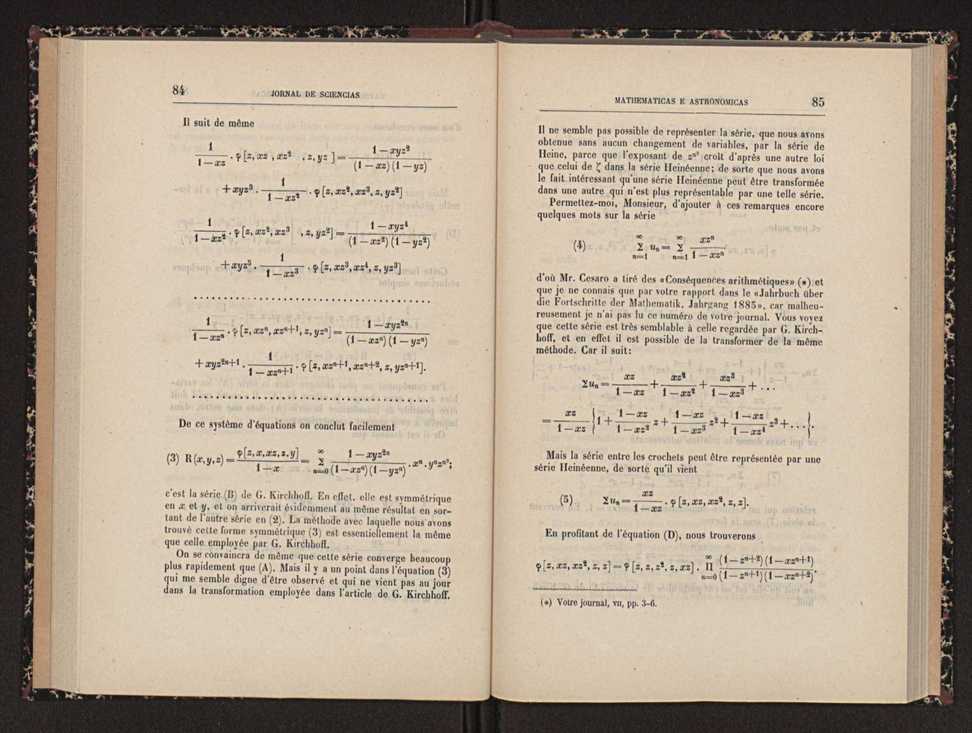 84 JORNAL DE SCIENCIAS
Il suit de même
1/(1—xz) · φ [z, xz , xz² , z, yz ] = (1—xyz²)/((1—xz) (1—yz))
+ xyz³ · 1/(1—xz²) · φ [z, xz², xz³, z, yz²]
1/(1—xz²) · φ [z, xz², xz³ , z, yz²] = (1—xyz⁴)/((1—xz²) (1—yz²))
+ xyz⁵ · 1/(1—xz³) · φ [z, xz³, xz⁴, z, yz³]
. . . . . . . . . . . . . . . . . . . . . . . . . . . . . . . . . .
1/(1—xzⁿ) · φ [z, xzⁿ, xzⁿ⁺¹, z, yzⁿ] = (1—xyz²ⁿ)/((1—xzⁿ) (1—yzⁿ))
+ xyz²ⁿ⁺¹ · 1/(1—xzⁿ⁺¹) · φ [z, xzⁿ⁺¹, xzⁿ⁺², z, yzⁿ⁺¹].
. . . . . . . . . . . . . . . . . . . . . . . . . . . . . . . . . .
De ce système d'équations on conclut facilement
(3) R (x, y, z) = φ[z, x, xz, z, y]/(1—x) = Σ n=0 ∞ (1—xyz²ⁿ)/((1—xzⁿ)(1—yzⁿ)) · xⁿ · yⁿzⁿ²;
c'est la série (B) de G. Kirchhoff. En effet, elle est symmétrique
en x et y, et on arriverait évidemment au même résultat en sor-
tant de l'autre série en (2). La méthode avec laquelle nous avons
trouvé cette forme symmétrique (3) est essentiellement la même
que celle employée par G. Kirchhoff.
On se convaincra de même que cette série converge beaucoup
plus rapidement que (A). Mais il y a un point dans l'équation (3)
qui me semble digne d'être observé et qui ne vient pas au jour
dans la transformation employée dans l'article de G. Kirchhoff.
MATHEMATICAS E ASTRONOMICAS 85
Il ne semble pas possible de représenter la série, que nous avons
obtenue sans aucun changement de variables, par la série de
Heine, parce que l'exposant de zⁿ² croît d'après une autre loi
que celui de ζ dans la série Heinéenne; de sorte que nous avons
le fait intéressant qu'une série Heinéenne peut être transformée
dans une autre qui n'est plus représentable par une telle série.
Permettez-moi, Monsieur, d'ajouter à ces remarques encore
quelques mots sur la série
(4) Σ n=1 ∞ uₙ = Σ n=1 ∞ xzⁿ/(1—xzⁿ)
d'où Mr. Cesaro a tiré des «Conséquences arithmétiques» (*) et
que je ne connais que par votre rapport dans le «Jahrbuch über
die Fortschritte der Mathematik, Jahrgang 1885», car malheu-
reusement je n'ai pas lu ce numéro de votre journal. Vous voyez
que cette série est très semblable à celle regardée par G. Kirch-
hoff, et en effet il est possible de la transformer de la même
méthode. Car il suit:
Σuₙ = xz/(1—xz) + xz²/(1—xz²) + xz³/(1—xz³) + . . .
= xz/(1—xz) {1 + (1—xz)/(1—xz²) z + (1—xz)/(1—xz³) z² + (1—xz)/(1—xz⁴) z³ + . . .}.
Mais la série entre les crochets peut être représentée par une
série Heinéenne, de sorte qu'il vient
(5) Σuₙ = xz/(1—xz) · φ [z, xz, xz², z, z].
En profitant de l'équation (D), nous trouverons
φ [z, xz, xz², z, z] = φ [z, z, z², z, xz] . Π n=0 ∞ ((1—zⁿ⁺²) (1—xzⁿ⁺¹))/((1—zⁿ⁺¹) (1—xzⁿ⁺²)).
(*) Votre journal, vii, pp. 3-6.